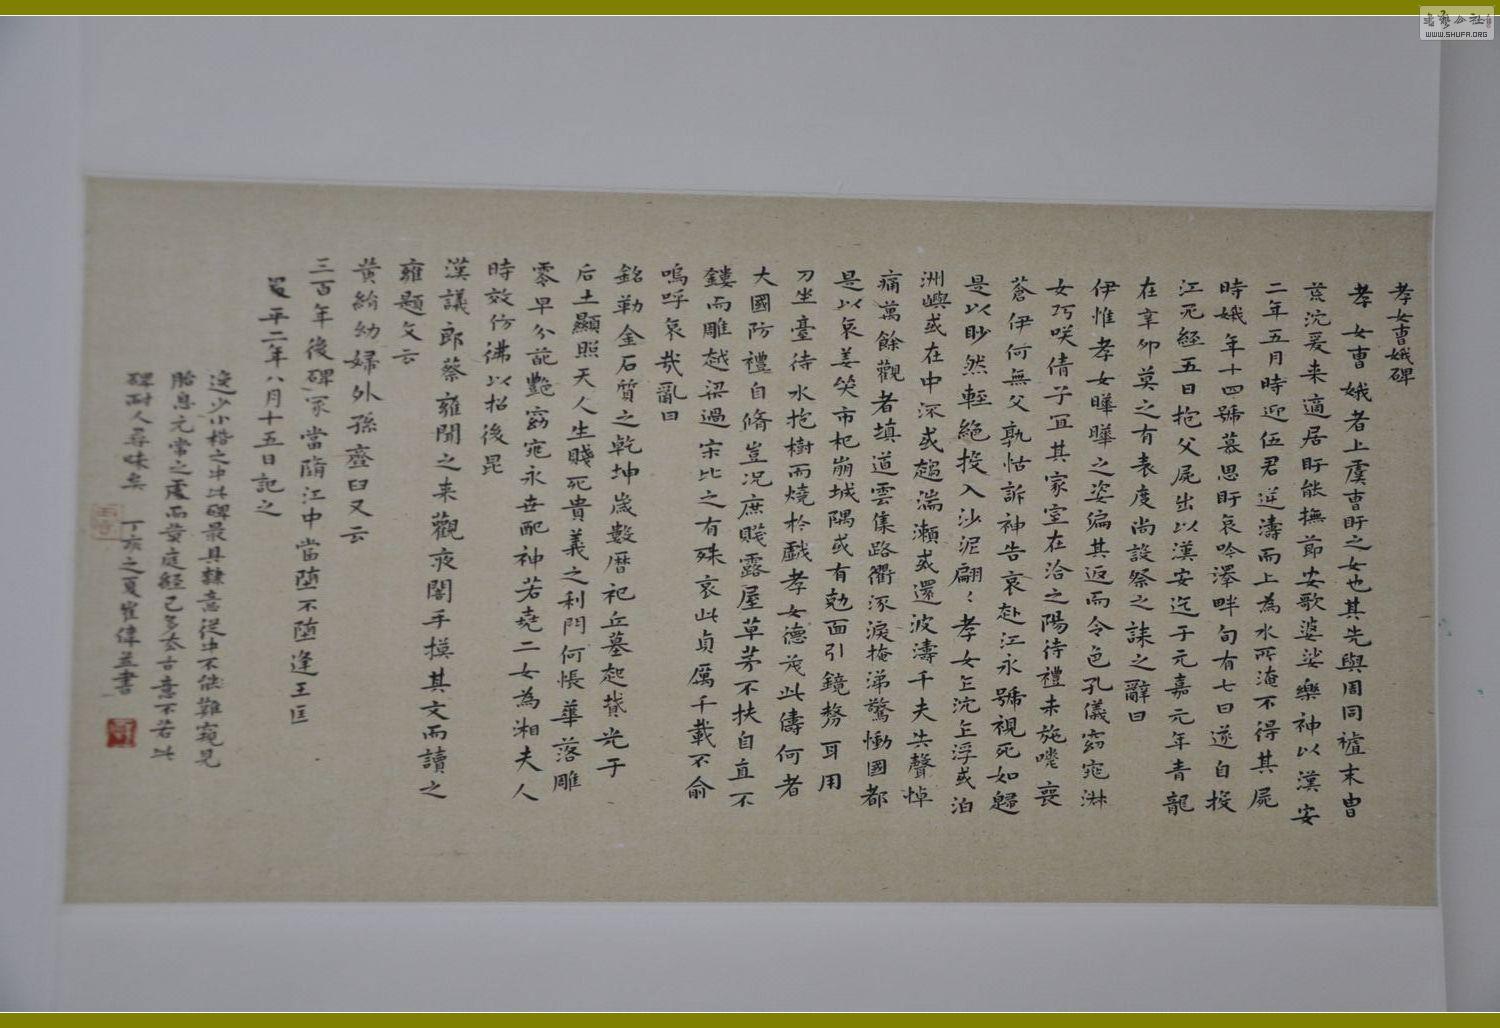 孝女曹娥碑
孝女曹娥者上虞曹盱之女也其先與周同祖末曹
荒沉爰来適居盱能撫節安歌婆娑樂神以漢安
二年五月時迎伍君逆濤而上為水所淹不得其屍
時娥年十四號慕思盱哀吟澤畔旬有七日遂自投
江死經五日抱父屍出以漢安迄于元嘉元年青龍
在辛卯莫之有表度尚設祭之誄之辭曰
伊惟孝女曄曄之姿偏其返而令色孔儀窈窕淑
女巧咲倩子宜其家室在洽之陽待禮未施嗟喪
蒼伊何無父孰怙訴神告哀赴江永號視死如歸
是以眇然輕絕投入沙泥翩〻孝女乍沉乍浮或泊
洲嶼或在中流或趨湍瀨或還波濤千夫失聲悼
痛萬餘觀者填道雲集路衢流淚掩涕驚慟國都
是以哀姜哭市杞崩城隅或有勊面引鏡剺耳用
刀坐臺待水抱樹而燒於戲孝女德茂此儔何者
大國防禮自脩豈况庶賤露屋草茅不扶自直不
鏤而雕越梁過宋比之有殊哀此貞厲千載不渝
嗚呼哀哉亂曰
銘勒金石質之乾坤歲數曆祀丘墓起墳光于
后土顯照天人生賤死貴義之利門何悵華落雕
零早分葩艷窈窕永世配神若堯二女為湘夫人
時效仿彿以招後昆
漢議郎蔡雍聞之来觀夜闇手摸其文而讀之
雍題文云
黄絹幼婦外孫齏臼又云
三百年後碑冢當墮江中當墮不墮逢王匡
昇平二年八月十五日記之
逸少小楷之中此碑最具隸意從中不能難窺見
胎息元常之處而黄庭經已多太古意不若此
碑耐人尋味矣 丁亥之夏崔偉並書
書艺公社
WWW.SHUFA.ORG